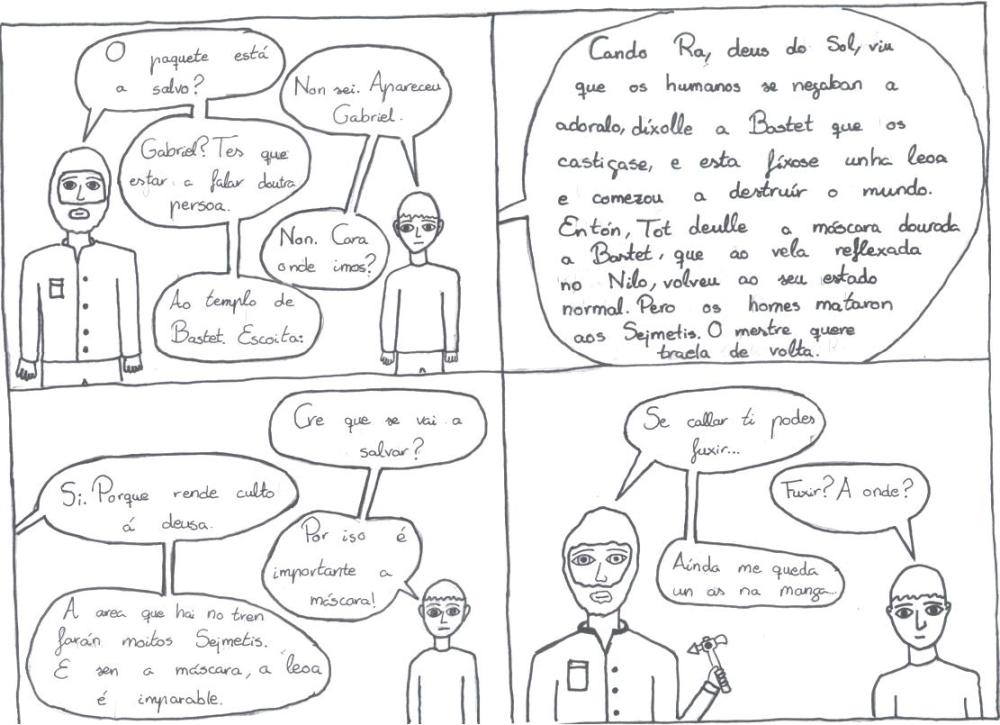 O paquete está
a salvo?
Non sei. Apareceu
Gabriel.
Gabriel? Tes que
estar a falar doutra
persoa.
Non. Cara
onde imos?
Ao templo de
Bastet. Escoita:
Cando Ra, deus do Sol, viu
que os humanos se negaban a
adoralo, díxolle a Bastet que os
castigase, e esta fíxose unha leoa
e comezou a destruír o mundo.
Entón, Tot deulle a máscara dourada
a Bastet, que ao vela reflexada
no Nilo, volveu ao seu estado
normal. Pero os homes mataron
aos Sejmetis. O mestre quere
traela de volta.
Cre que se vai a
salvar?
Si. Porque rende culto
á deusa.
Por iso é
importante a
máscara!
A area que hai no tren
farán moitos Sejmetis.
E sen a máscara, a leoa
é imparable.
Se callar ti podes
fuxir...
Fuxir? A onde?
Aínda me queda
un as na manga...